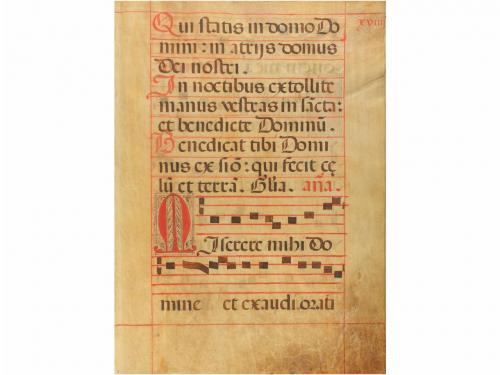 Qui statis in domo Do
mini: in atrijs domus
Dei nostri.
In noctibus extollite
manus vestras in sãcta:
et benedicte Dominũ.
Benedicat tibi Domi
nus ex siõ: qui fecit cę
lũ et terrã. Glĩa. aña.
Miserere mihi Do
mine et exaudi orati
xviii